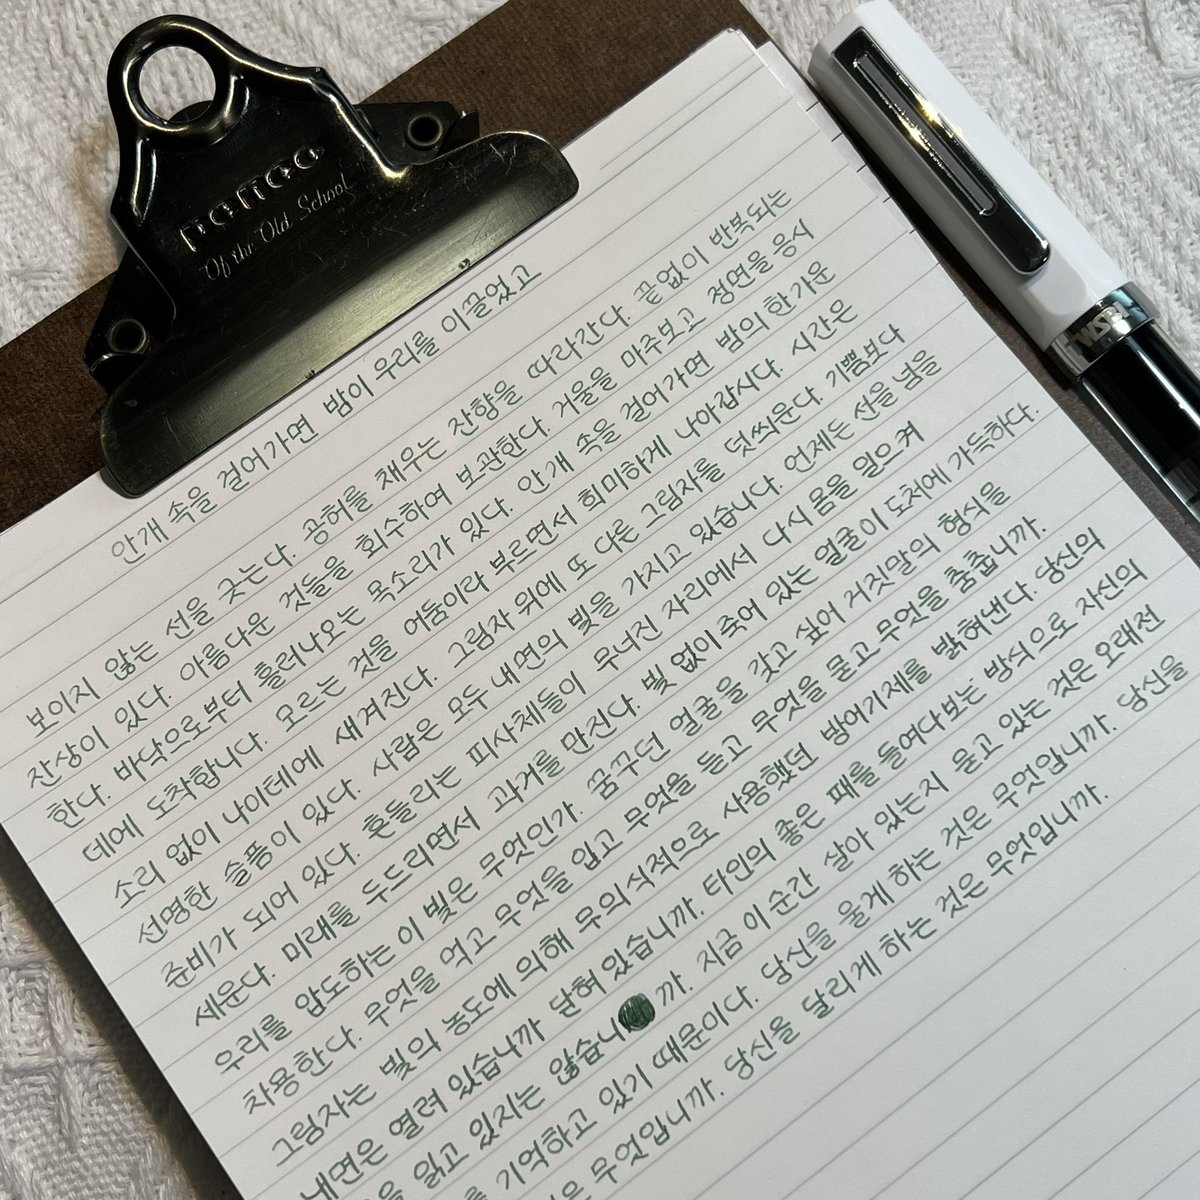 nemne
Of the Old School
TWSBI
안개 속을 걸어가면 밤이 우리를 이끌었고
보이지 않는 선을 긋는다. 공허를 채우는 잔향을 따라간다. 끝없이 반복되는
잔상이 있다. 아름다운 것들을 회수하여 보관한다. 거울을 마주보고 정면을 응시
한다. 바닥으로부터 흘러나오는 목소리가 있다. 안개 속을 걸어가면 밤의 한가운
데에 도착합니다. 모르는 것을 어둠이라 부르면서 희미하게 나아갑시다. 시간은
소리 없이 나이테에 새겨진다. 그림자 위에 또 다른 그림자를 덧씌운다. 기쁨보다
선명한 슬픔이 있다. 사람은 모두 내면의 빛을 가지고 있습니다. 언제든 선을 넘을
준비가 되어 있다. 흔들리는 피사체들이 무너진 자리에서 다시 몸을 일으켜
세운다. 미래를 두드리면서 과거를 만진다. 빛 없이 죽어 있는 얼굴이 도처에 가득하다.
우리를 압도하는 이 빛은 무엇인가. 꿈꾸던 얼굴을 갖고 싶어 거짓말의 형식을
차용한다. 무엇을 먹고 무엇을 입고 무엇을 듣고 무엇을 묻고 무엇을 춤춥니까.
그림자는 빛의 농도에 의해 무의식적으로 사용했던 방어기제를 밝혀낸다. 당신의
내면은 열려 있습니까 닫혀 있습니까. 타인의 좋은 패를 들여다보는 방식으로 자신의
을 읽고 있지는 않습니 까. 지금 이 순간 살아 있는지 묻고 있는 것은 오래전
를 기억하고 있기 때문이다. 당신을 울게 하는 것은 무엇입니까. 당신을
은 무엇입니까. 당신을 달리게 하는 것은 무엇입니까.